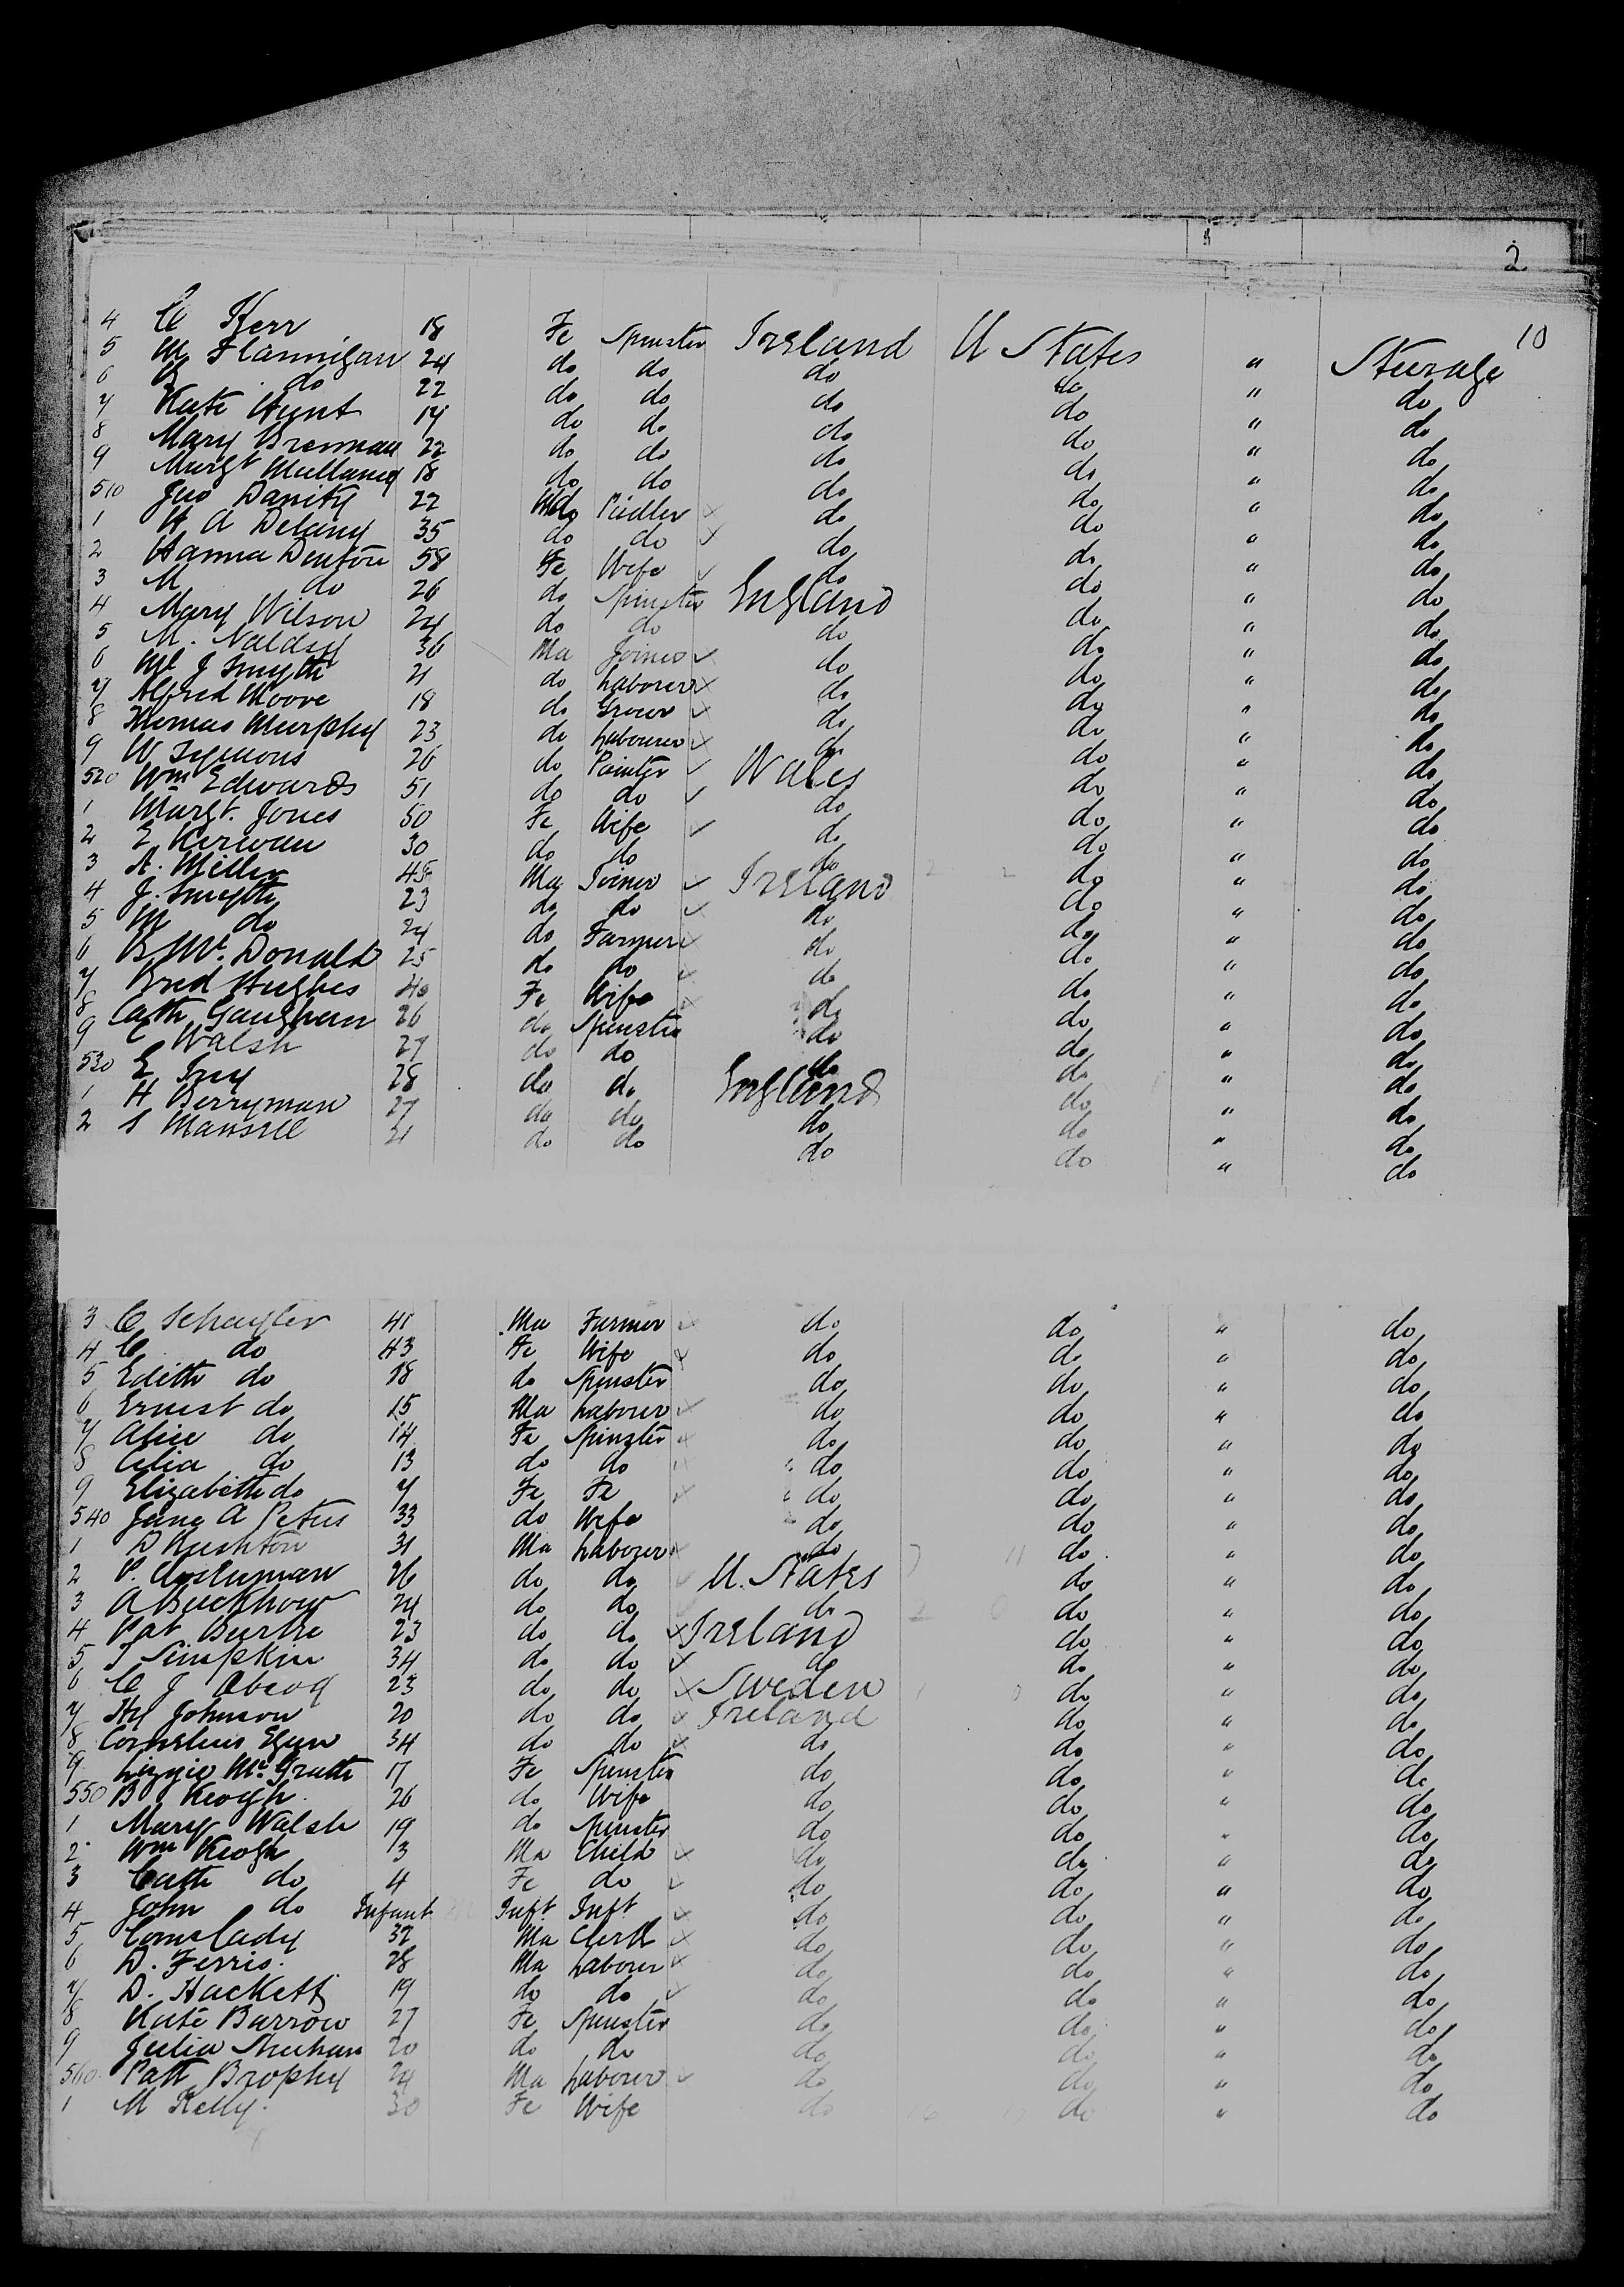 2
10
4 C Kerr 18 Fe Spinster Ireland U States " Steerage
5 M Flannigan 24 do do do do " do
6 B do 22 do do do do " do
7 Kate Hunt 17 do do do do " do
8 Mary Brennan 22 do do do do " do
9 Margt Mullaney 18 do do do do " do
510 Jno Danity 22 Ma Pedler do do " do
1 H A Delany 35 do do do do " do
2 Hanna Denton 58 Fe Wife do do " do
3 M do 26 do Spinster England do " do
4 Mary Wilson 24 do do do do " do
5 M. 36 Ma Joiner do do " do
6 Ml J Smyth 21 do Laborer do do " do
7 Alfred Moore 18 do Grocer do do " do
8 Thomas Murphy 23 do Labourer do do " do
9 W Symons 26 do Painter Wales do " do
520 Wm Edwards 51 do do do do " do
1 Margt. Jones 50 Fe Wife do do " do
2 E Kerwan 30 do do do do " do
3 A. Miller 45 Ma Joiner Ireland do " do
4 J. Smyth 23 do do do do " do
5 M do 24 do Farmer do do " do
6 B Mc. Donald 25 do do do do " do
7 Bred Hughes 40 Fe Wife do do " do
8 Cath Gaughan 26 do Spinster do do " do
9 C Walsh 27 do do do do " do
530 E 28 do do England do " do
1 H Berryman 27 do do do do " do
2 S Mansell 21 do do do do " do
3 C 41 Ma Farmer do do " do
4 C do 43 Fe Wife do do " do
5 Edith do 18 do Spinster do do " do
6 Ernest do 15 Ma Laborer do do " do
7 Alice do 14 Fe Spinster do do " do
8 Celia do 13 do do do do " do
9 Elizabeth do 7 Fe Fe do do " do
540 Jane A Peters 33 do Wife do do " do
1 D Rushton 31 Ma Laborer do do " do
2 P. 26 do do U. States do " do
3 A Buckhow 24 do do do do " do
4 Pat Burke 23 do do Ireland do " do
5 T Simpkin 34 do do do do " do
6 C J 23 do do Sweden do " do
7 Hy Johnson 20 do do Ireland do " do
8 Cornelius Egan 34 do do do do " do
9 Lizzie Mc Grath 17 Fe Spinster do do " do
550 B Keogh 26 do Wife do do " do
1 Mary Walsh 19 do Spinster do do " do
2 Wm Keogh 3 Ma Child do do " do
3 Cath do 4 Fe do do do " do
4 John do Infant Inft Inft do do " do
5 32 Ma Clerk do do " do
6 D. Ferris. 28 Ma Laborer do do " do
7 D. Hackett 19 do do do do " do
8 Kate Barrow 27 Fe Spinster do do " do
9 Julia Sheehan 20 do do do do " do
560 Patt Brophy 24 Ma Laborer do do " do
1 M Kelly. 30 Fe Wife do do " do